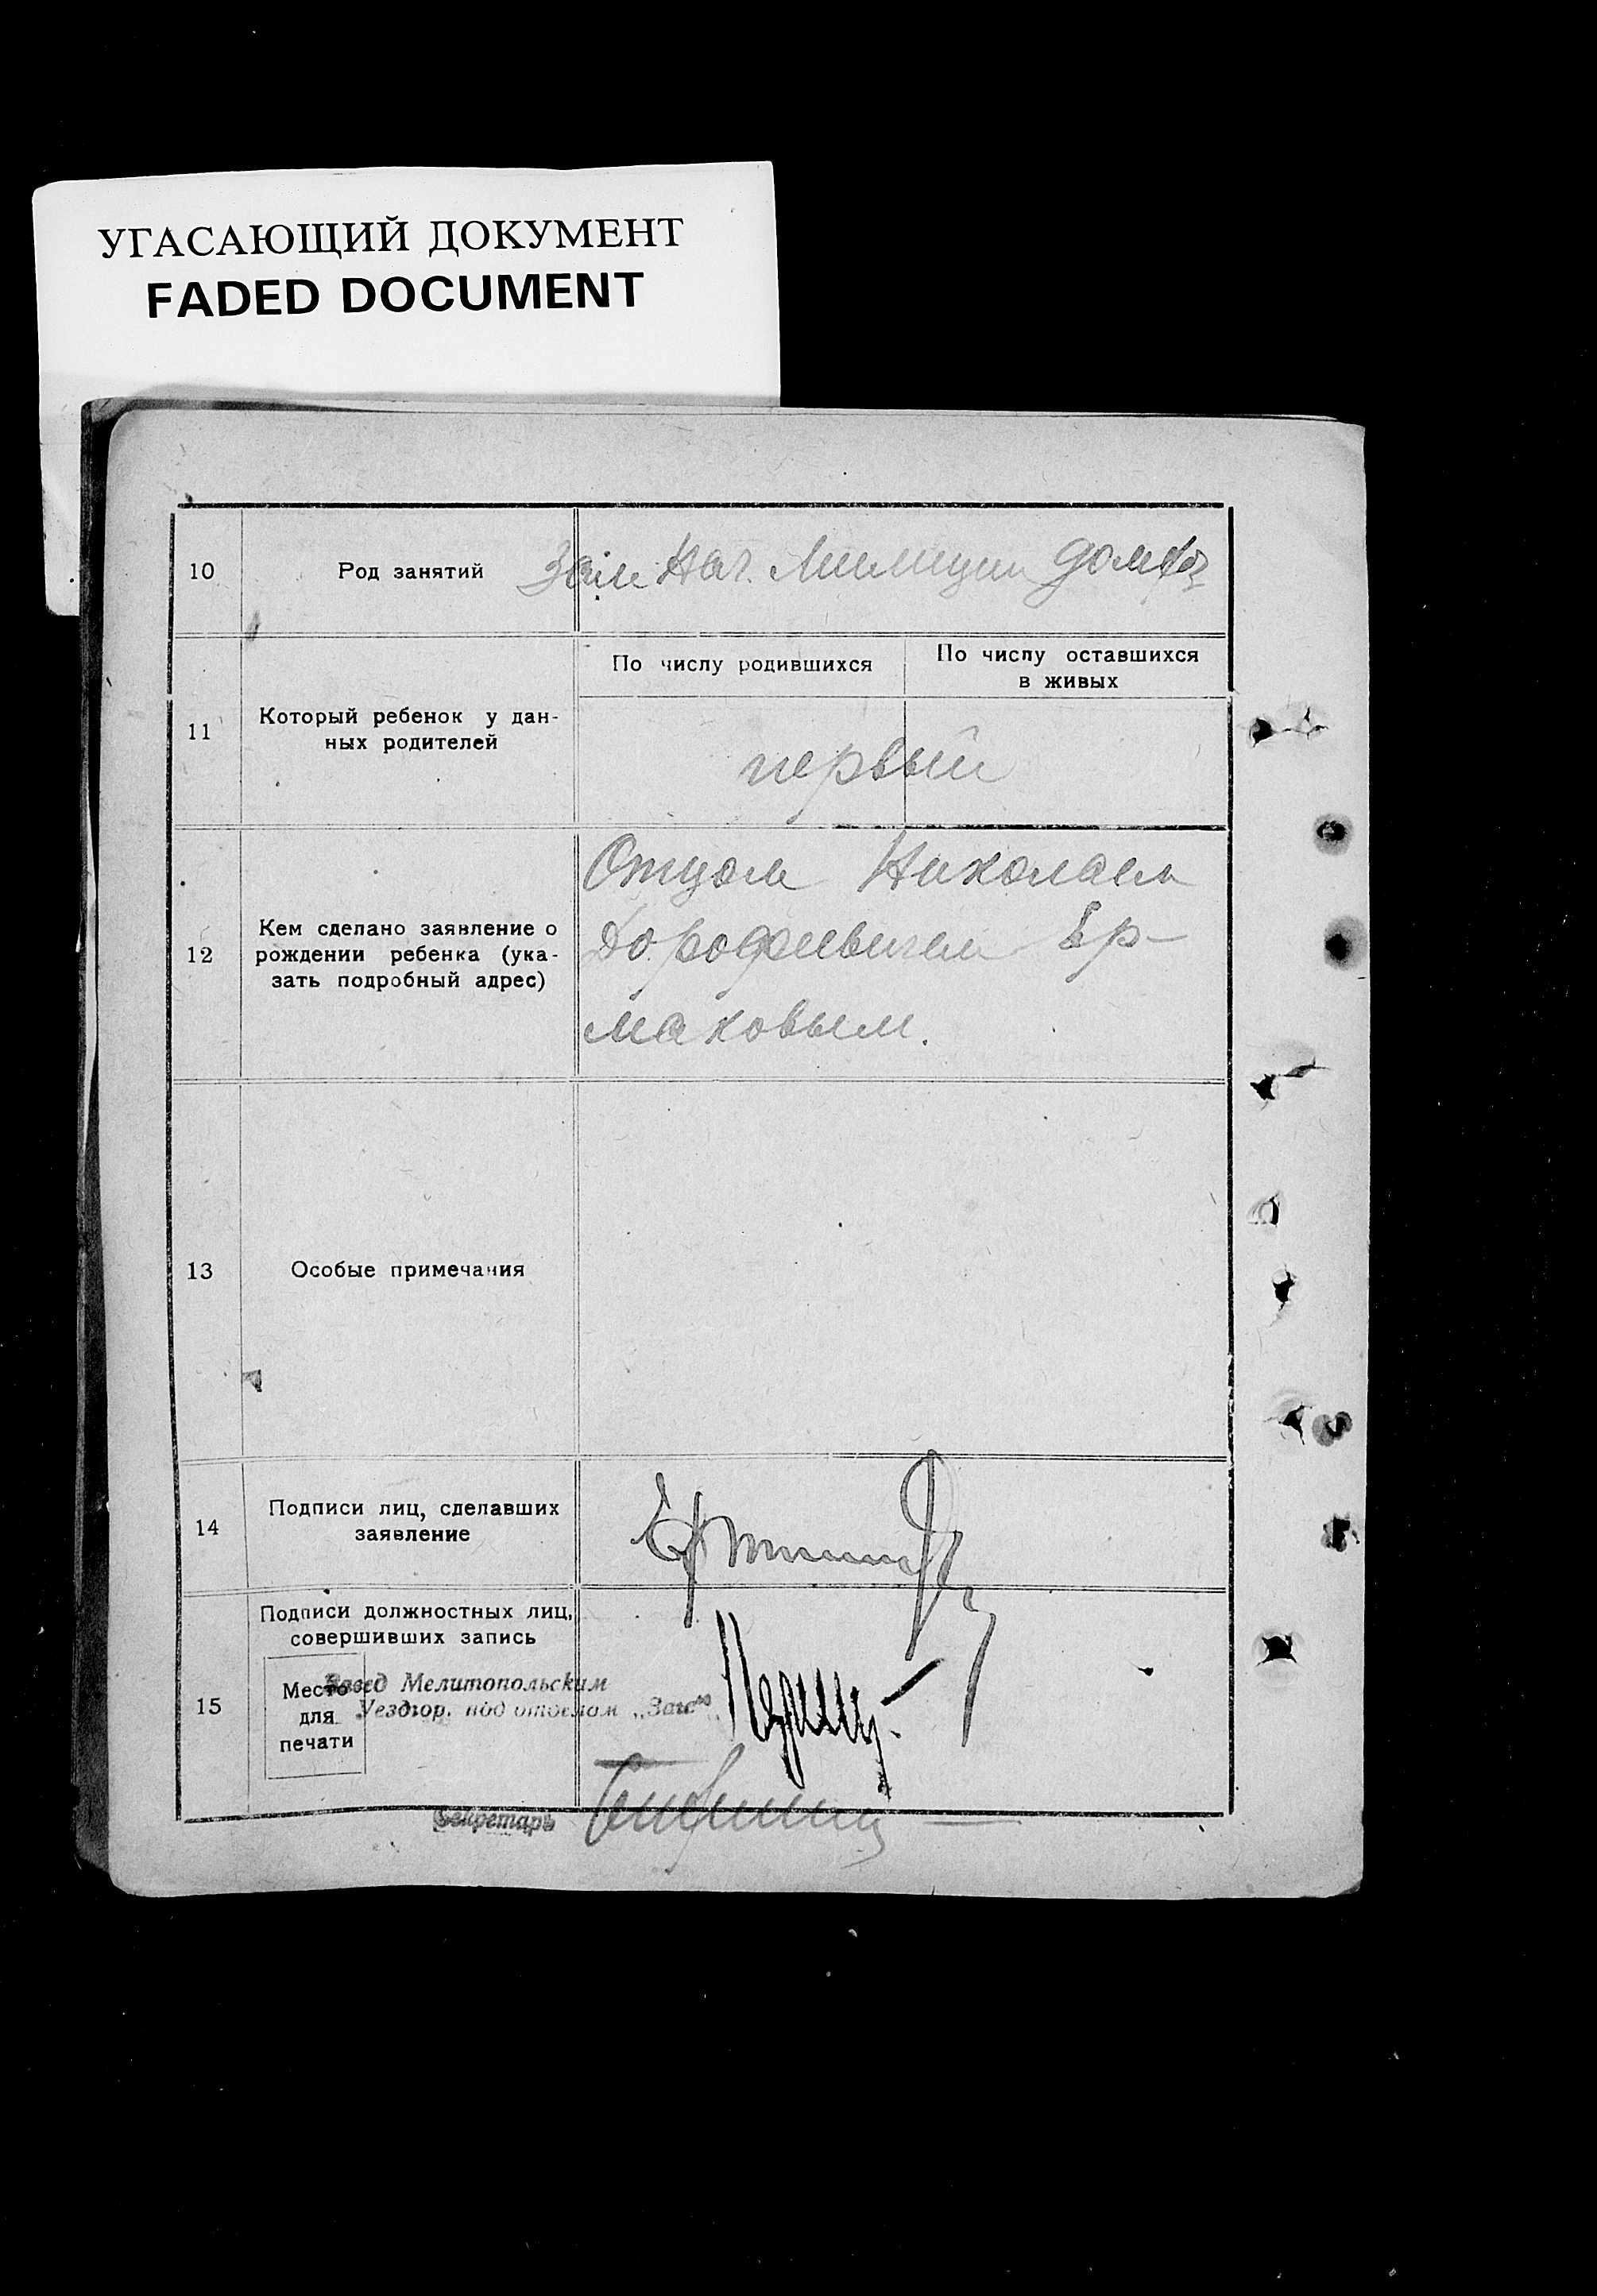 УГАСАЮЩИЙ ДОКУМЕНТ
FADED DOCUMENT
10 Род занятий Зам. Нач. Милиции домхоз
11 Который ребенок у дан-
ных родителей
По числу родившихся
По числу оставшихся
в живых
первый
12 Кем сделано заявление о
рождении ребенка (ука-
зать подробный адрес)
Отцом Николаем
Дорофеевичем Ер-
маковым.
13 Особые примечания
14 Подписи лиц, сделавших
заявление
15 Подписи должностных лиц,
совершивших запись
Место
для
печати
Завед Мелитопольским
Уездгор. под отделом „Загс“
Секретарь